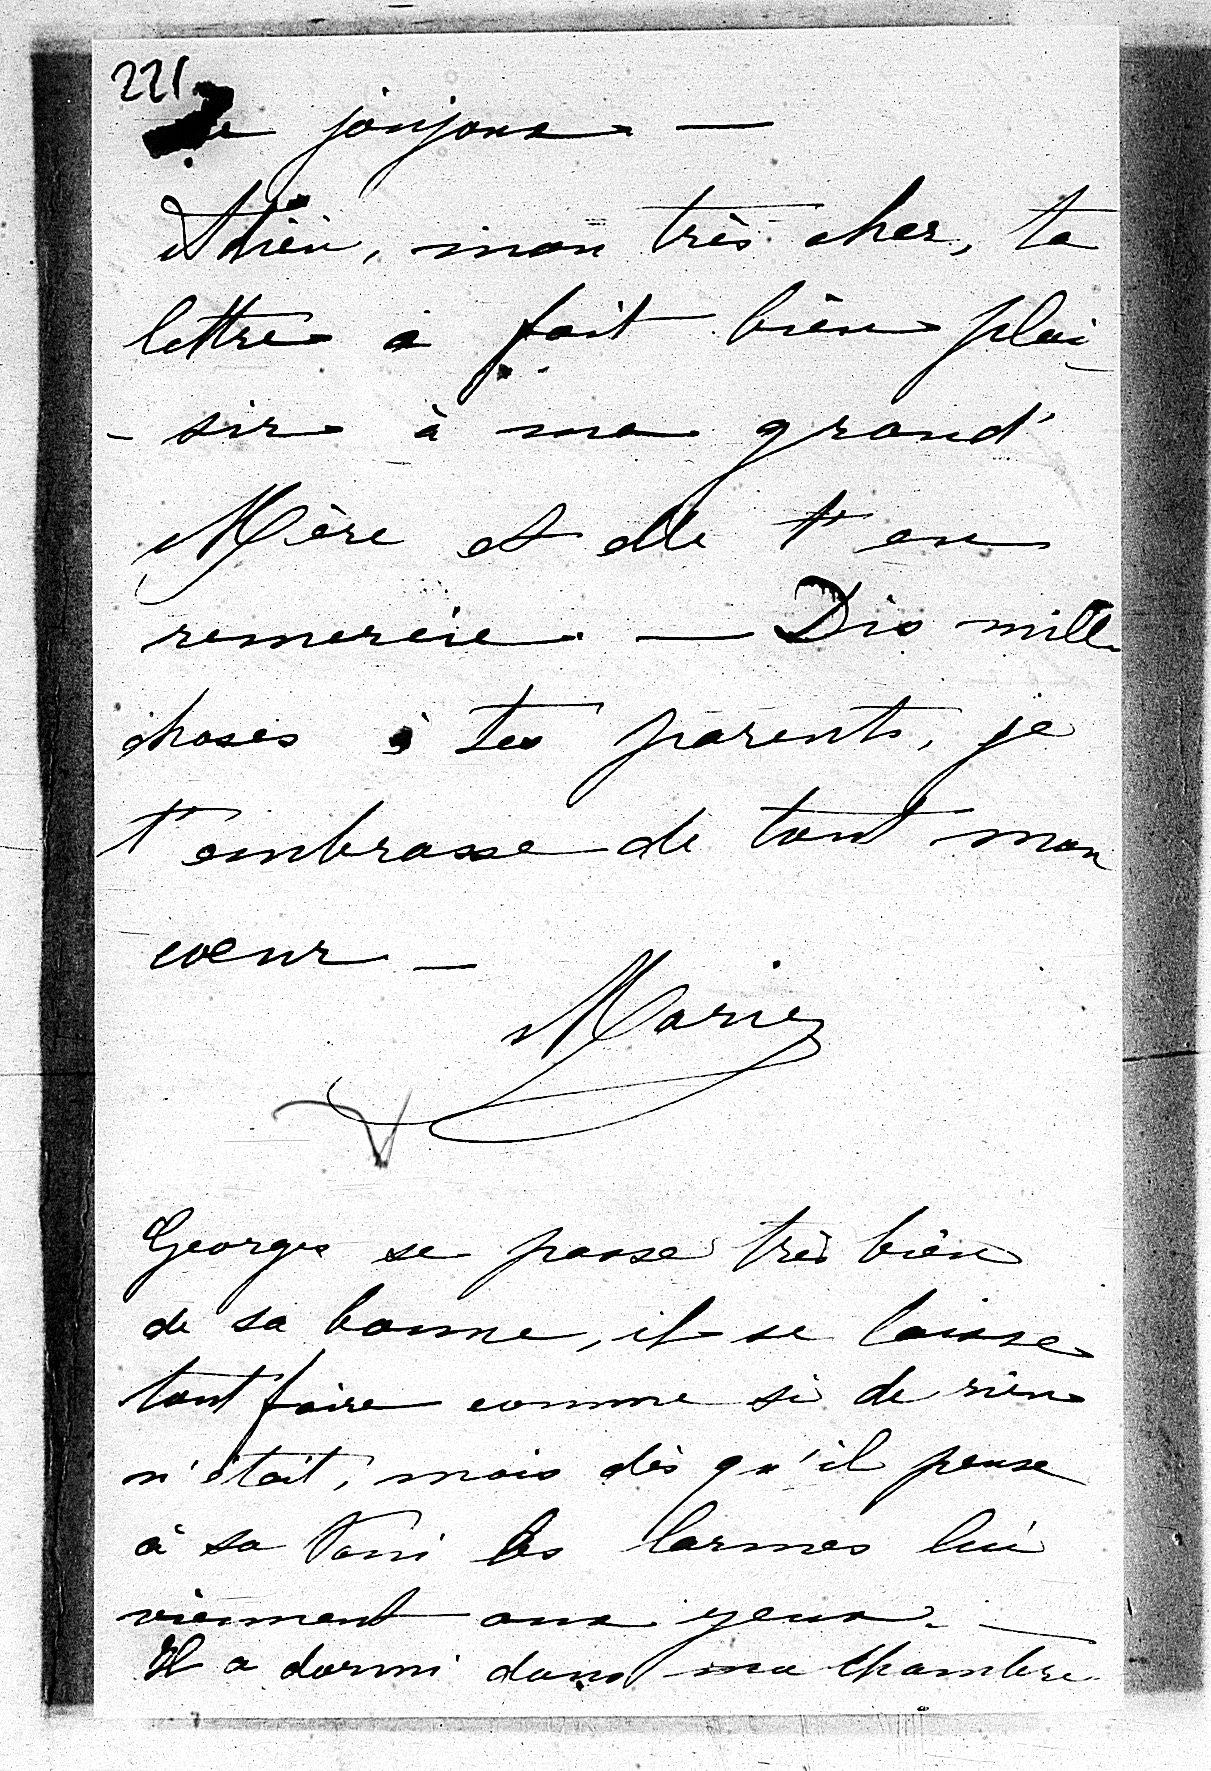 221
de joujoux. —
Adieu, mon très cher, ta
lettre a fait bien plai
- sir à ma grand'
Mère et elle t'en
remercie. — Dis mille
choses à tes parents, je
t'embrasse de tout mon
coeur —
Marie
Georges se passe très bien
de sa bonne, il se laisse
tout faire comme si de rien
n'était, mais dès qu'il pense
à sa les larmes lui
viennent aux yeux. —
Il a dormi dans ma chambre